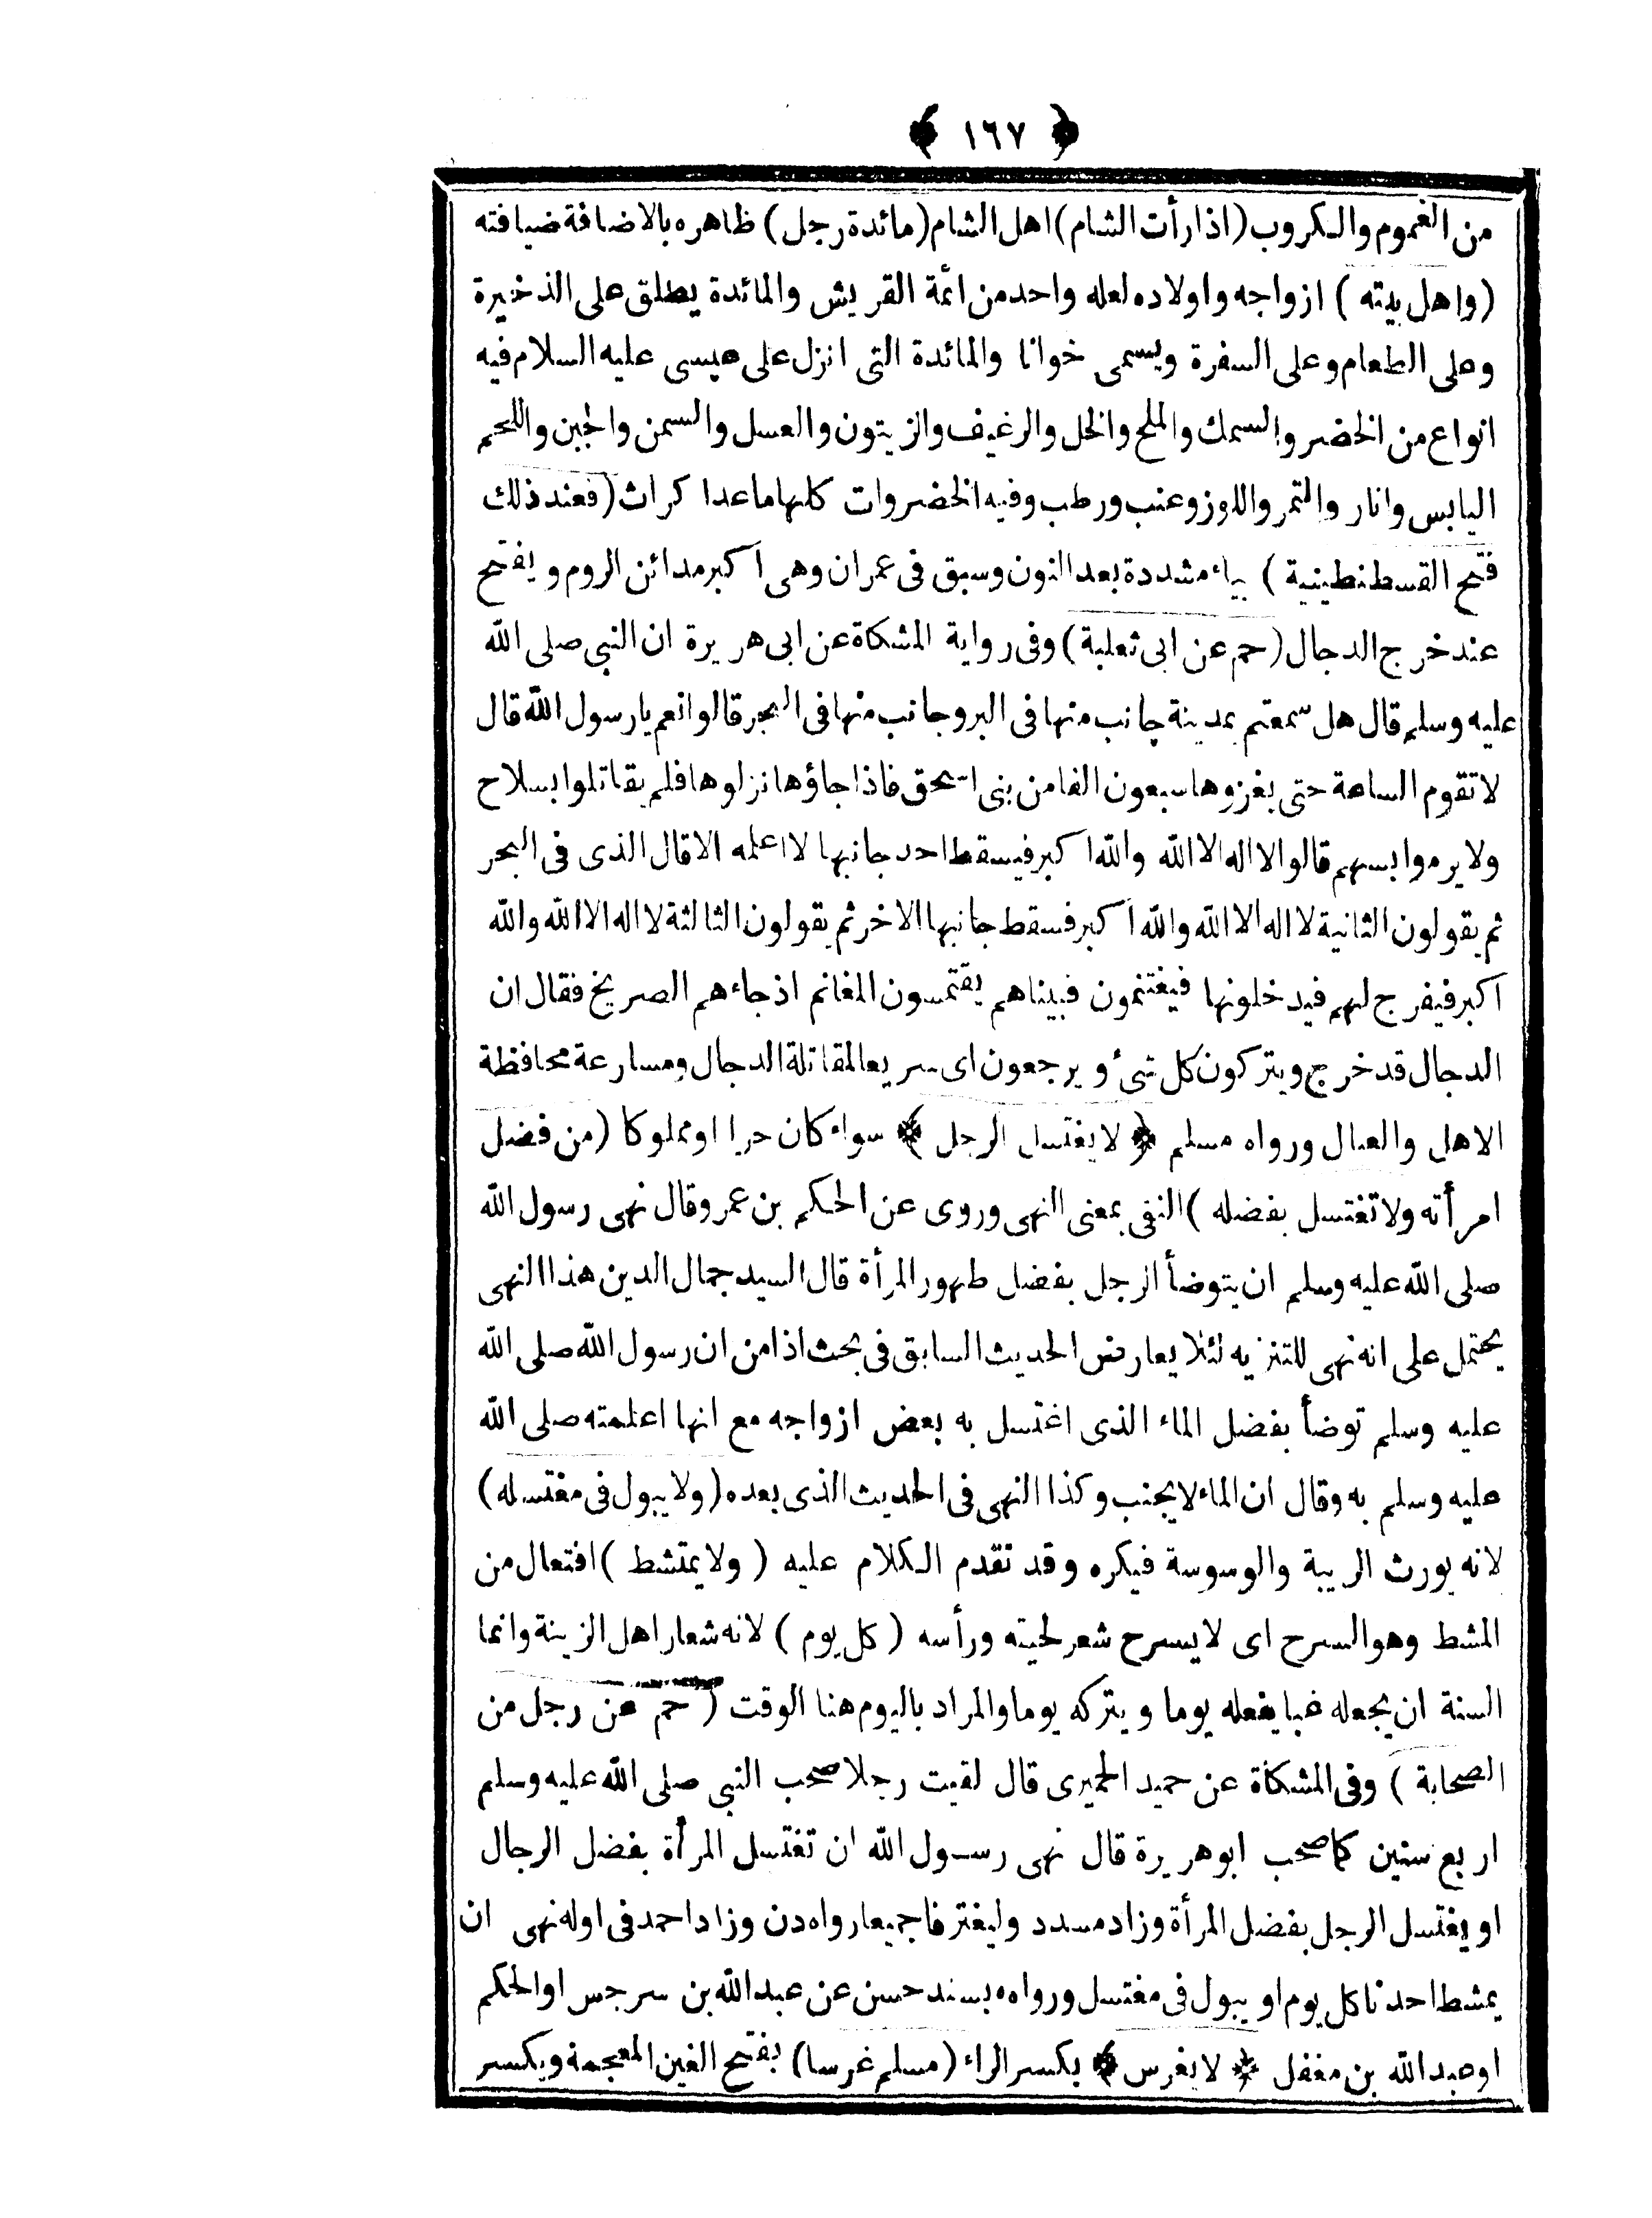 ﴿ ١٦٧ ﴾
من الغموم والكروب (اذا رأت الشام) اهل الشام (مائدة رجل) ظاهره بالاضافة ضيافته
(واهل بيته) ازواجه واولاده لعله واحد من ائمة القريش والمائدة يطلق على الذخيرة
وعلى الطعام وعلى السفرة ويسمى خوانا والمائدة التى انزل على عيسى عليه السلام فيه
انواع من الخضر والسمك والملح والخل والرغيف والزيتون والعسل والسمن والجبن واللحم
اليابس وانار والتمر واللوز وعنب ورطب وفيه الخضروات كلها ماعدا كراث (فعند ذلك
فتح القسطنطينية) بياء مشددة بعد النون وسبق فى عمران وهى اكبر مدائن الروم ويفتح
عند خرج الدجال (حم عن ابى ثعلبة) وفى رواية المشكاة عن ابى هريرة ان النبى صلى الله
عليه وسلم قال هل سمعتم بمدينة جانب منها فى البر وجانب منها فى البحر قالوا نعم يا رسول الله قال
لا تقوم الساعة حتى يغزوها سبعون الفا من بنى اسحق فاذا جاؤها نزلوها فلم يقاتلوا بسلاح
ولا يرموا بسهم قالوا لا اله الا الله والله اكبر فيسقط احد جانبها لا اعلمه الا قال الذى فى البحر
ثم يقولون الثانية لا اله الا الله والله اكبر فسقط جانبها الاخر ثم يقولون الثالثة لا اله الا الله والله
اكبر فيفرج لهم فيدخلونها فيغتنمون فبيناهم يقتمسون المغانم اذ جاءهم الصريخ فقال ان
الدجال قد خرج ويتركون كل شئ ويرجعون اى سريعا لمقاتلة الدجال ومسارعة محافظة
الاهل والعيال ورواه مسلم ﴿ لا يغتسل الرجل ﴾ سواء كان حرا او مملوكا (من فضل
امرأته ولا تغتسل بفضله) النفى بمعنى النهى وروى عن الحكم بن عمرو قال نهى رسول الله
صلى الله عليه وسلم ان يتوضأ الرجل بفضل طهور المرأة قال السيد جمال الدين هذا النهى
يحتمل على انه نهى للتنزيه لئلا يعارض الحديث السابق فى بحث اذا من ان رسول الله صلى الله
عليه وسلم توضأ بفضل الماء الذى اغتسل به بعض ازواجه مع انها اعلمته صلى الله
عليه وسلم به وقال ان الماء لا يجنب وكذا النهى فى الحديث الذى بعده (ولا يبول فى مغتسله)
لانه يورث الريبة والوسوسة فيكره وقد تقدم الكلام عليه (ولا يمتشط) افتعال من
المشط وهو السرح اى لا يسرح شعر لحيته ورأسه (كل يوم) لانه شعار اهل الزينة وانما
السنة ان يجعله غبا يفعله يوما ويتركه يوما والمراد باليوم هنا الوقت (حم عن رجل من
الصحابة) وفى المشكاة عن حميد الحميرى قال لقيت رجلا صحب النبى صلى الله عليه وسلم
اربع سنين كما صحب ابو هريرة قال نهى رسول الله ان تغتسل المرأة بفضل الرجال
او يغتسل الرجل بفضل المرأة وزاد مسدد وليغترفا جميعا رواه دن وزاد احمد فى اوله نهى ان
يمشط احدنا كل يوم او يبول فى مغتسل ورواه ه بسند حسن عن عبد الله بن سرجس او الحكم
او عبد الله بن مغفل ﴿ لا يغرس ﴾ بكسر الراء (مسلم غرسا) بفتح الغين المعجمة ويكسر